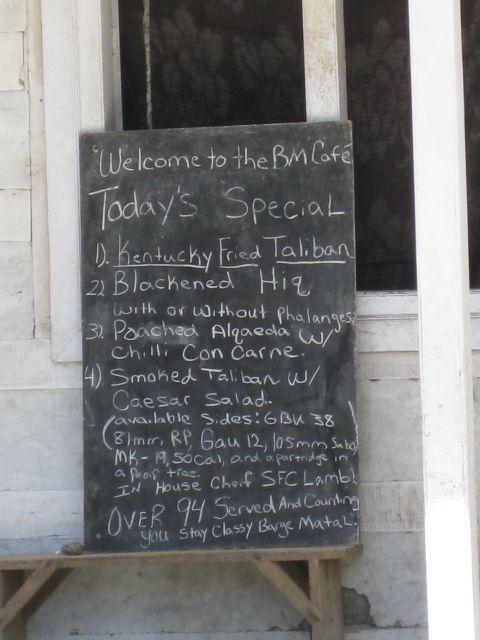 Welcome to the BM Café
Today's Special
1). Kentucky Fried Taliban
2) Blackened Hiq
with or without phalanges
3). Poached Alqaeda w/
Chilli Con Carne.
4) Smoked Taliban w/
Caesar Salad.
(available sides: GBU 38
81mm, RP, Gau 12, 105mm Sabo)
MK-19, 50 Cal, and a partridge in
a pear tree.
IN House Cheif SFC Lamb!
OVER 94 Served And Counting
you Stay Classy Barge Matal.